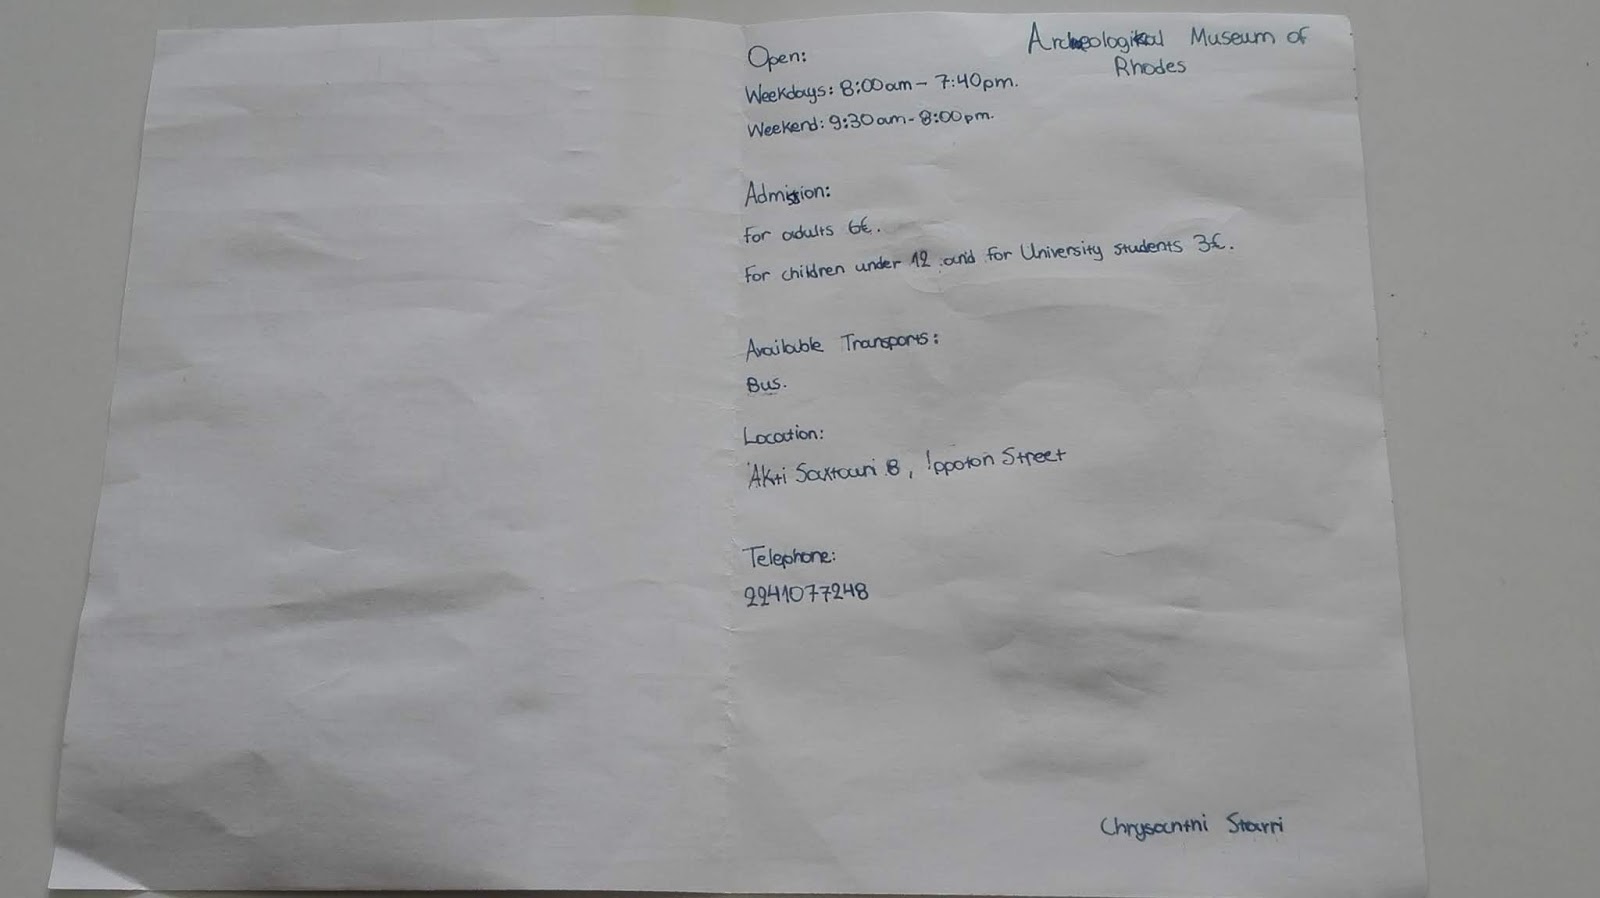 Archeological Museum of
Rhodes
Open:
Weekdays: 8:00am - 7:40pm.
Weekend: 9:30am - 8:00pm.
Admission:
For adults 6€.
For children under 12 and for University students 3€.
Available Transports:
Bus.
Location:
'Akti Saxtouri 8, Ippoton Street
Telephone:
2241077248
Chrysanthi Starri